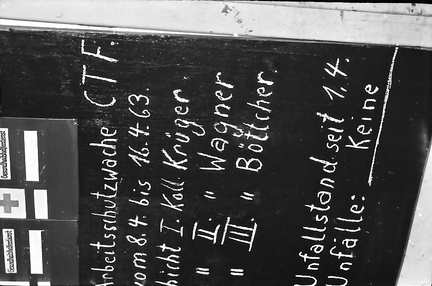 Arbeitsschutzwache CTF.
vom 8.4. bis 16.4.63.
hicht I. Koll Krüger.
" II. " Wagner
" III. " Böttcher.
Unfallstand seit 1.4.
Unfälle: Keine